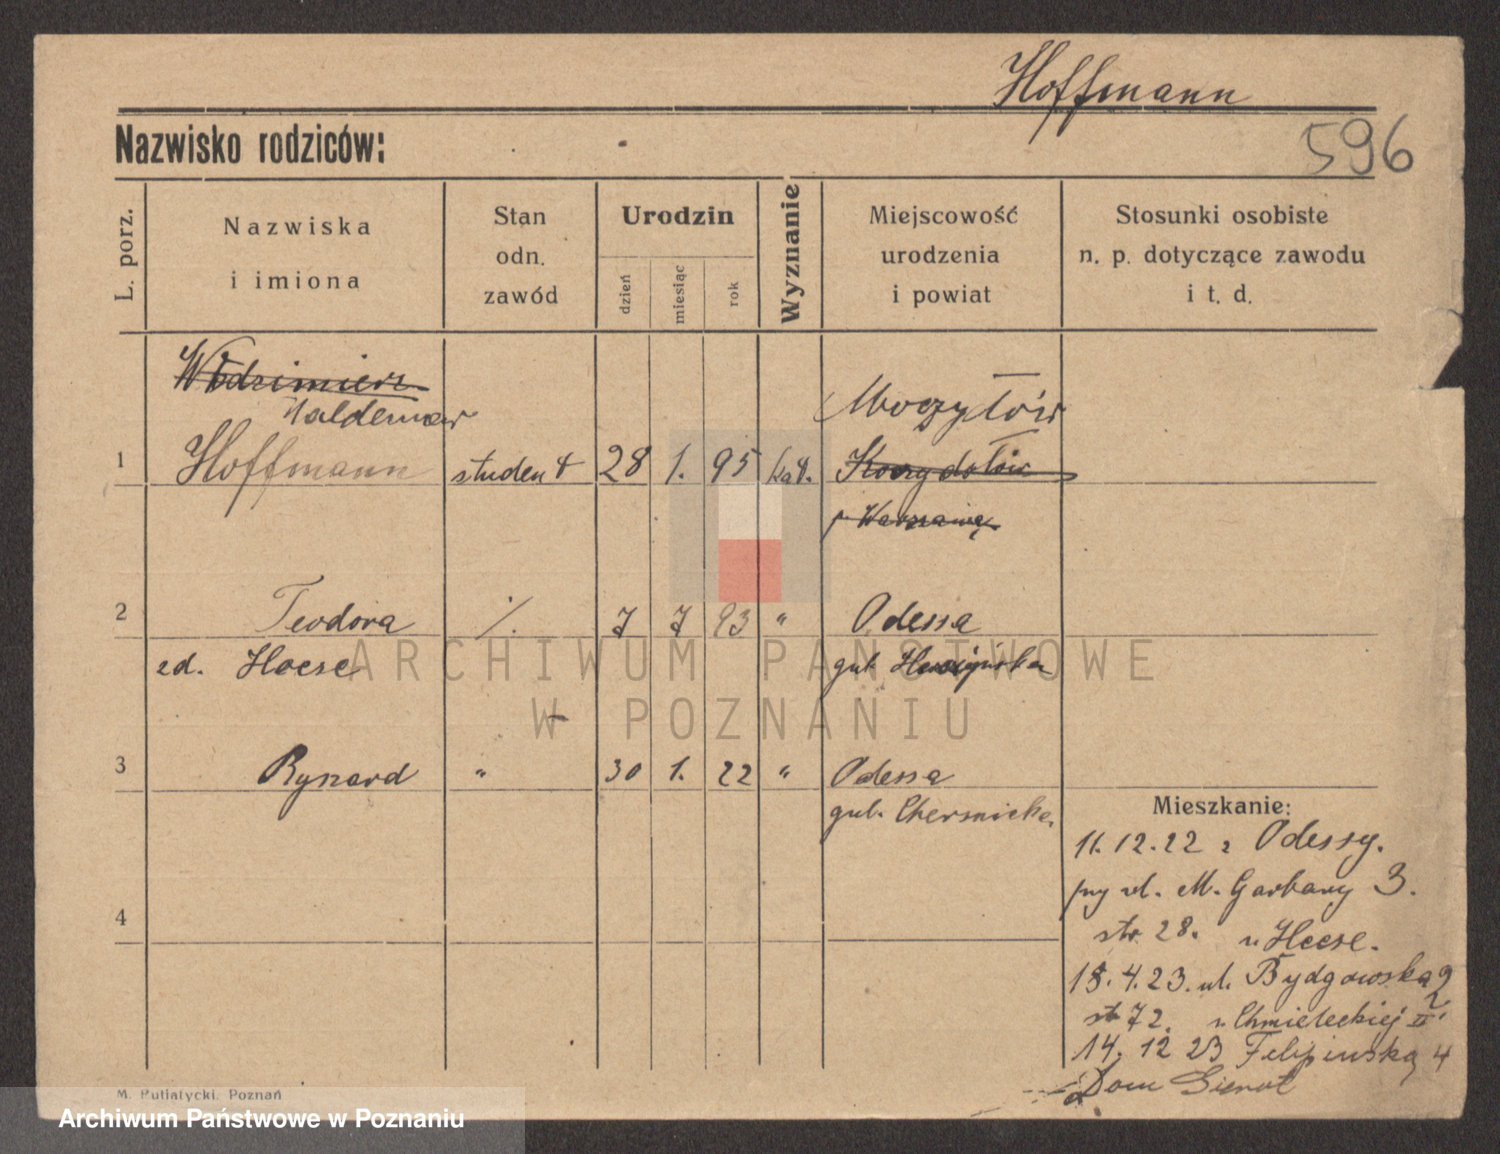 Hoffmann
Nazwisko rodziców:
596
L. porz.
Nazwiska
i imiona
Stan
odn.
zawód
Urodzin
dzień
miesiąc
rok
Wyznanie
Miejscowość
urodzenia
i powiat
Stosunki osobiste
n. p. dotyczące zawodu
i t. d.
Włodzimierz
Waldemar
1 Hoffmann student 28 1. 95 kat.
p. Warszawą
2 Teodora %. 7 7 93 "
Odessa
zd. Heese
gub.
3 Ryszard " 30 1. 22 " Odessa
gub.
4
Mieszkanie:
11.12.22 z Odessy.
przy ul. M. Garbary 3.
str. 28. u Heese.
18.4.23. ul. Bydgowska 9
str 72. u Chmieleckiej II
14. 12 23 Filipińska 4
Dom
M. Putiatycki, Poznań
ARCHIWUM PAŃSTWOWE
W POZNANIU
Archiwum Państwowe w Poznaniu